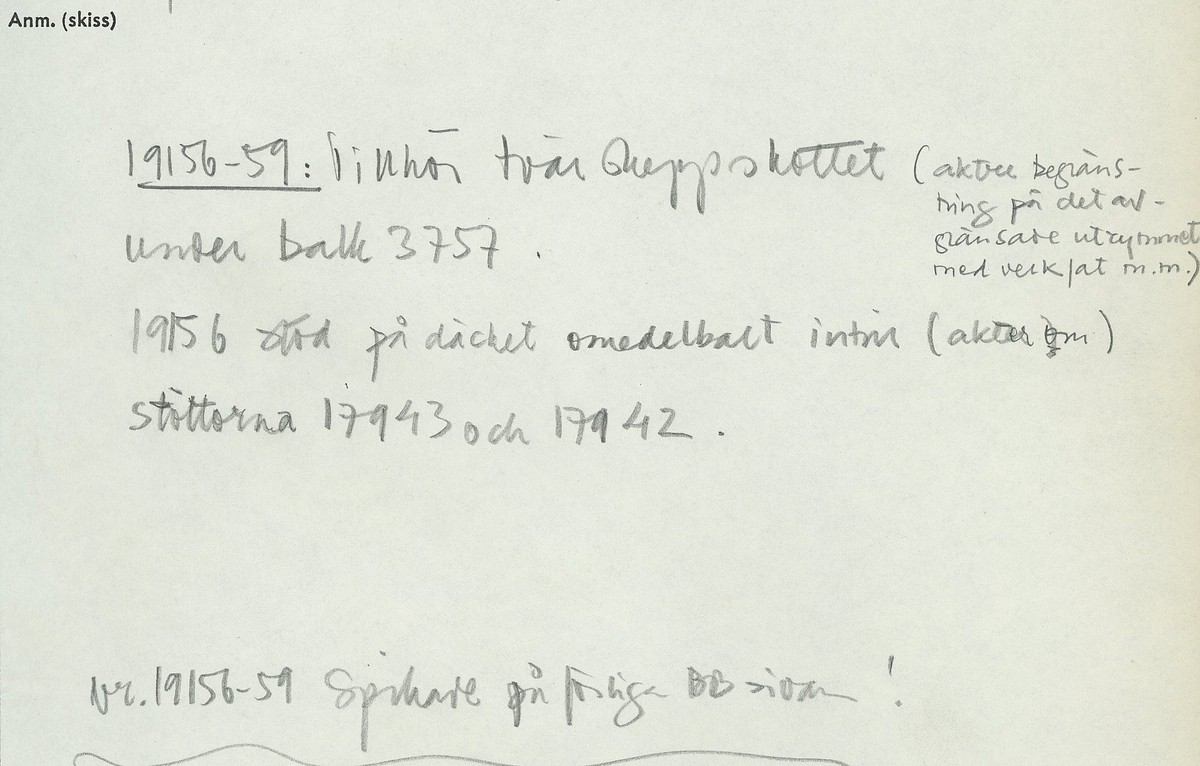 Anm. (skiss)
19156-59: Tillhör tvärskeppsskottet (aktre begräns-
ning på det av-
gränsade utrymmet
med verkstat m.m.)
under balk 3757.
19156 stod på däcket omedelbart intill (akter om)
stöttorna 17943 och 17942.
Nr. 19156-59 Spikade på förliga BB sidan!